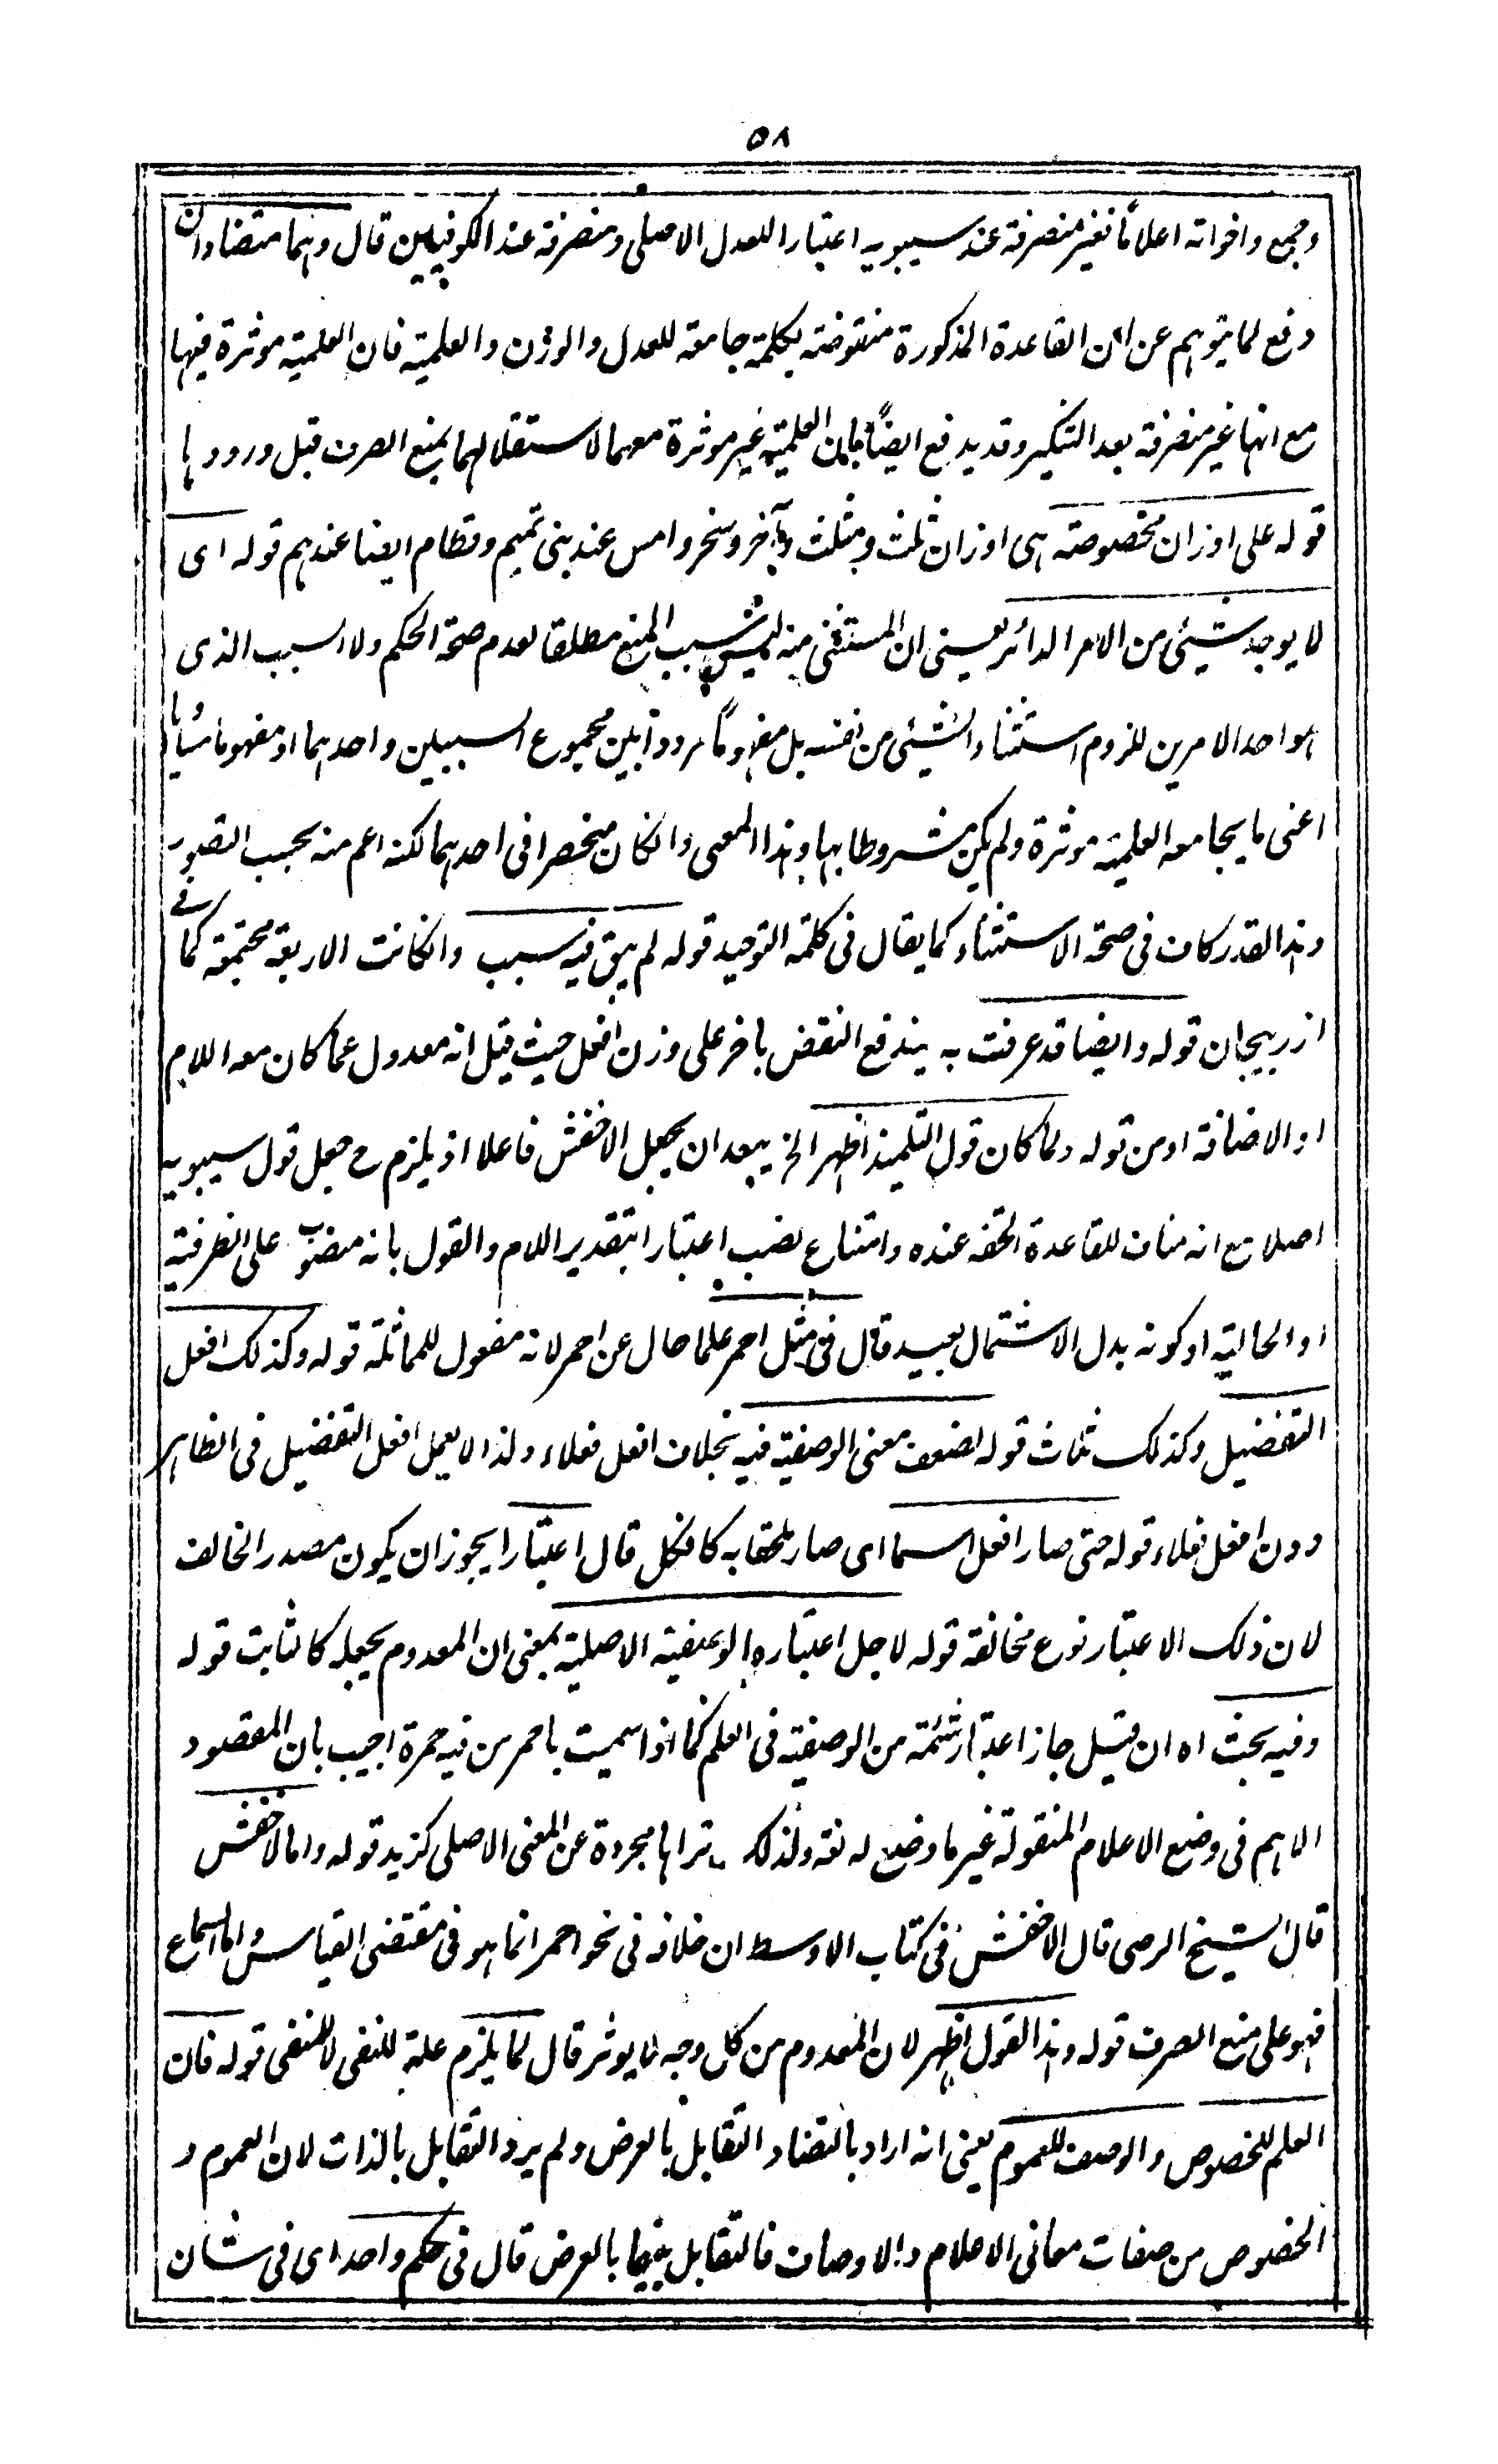 ٥٨
وجمع واخواته اعلاماً فغير منصرفة عند سيبويه اعتبارا للعدل الاصلى ومنصرفة عند الكوفيين قال وهما متضادان
دفع لما يتوهم عن ان القاعدة المذكورة منقوضة بكلمة جامعة للعدل والوزن والعلمية فان العلمية موثرة فيها
مع انها غير منصرفة بعد التنكير وقد يدفع ايضاً بان العلمية غير موثرة معهما لاستقلالهما بمنع الصرف قبل ورودها
قوله على اوزان مخصوصة هى اوزان ثلث ومثلث وآخر وسحر وامس عند بنى تميم وقطام ايضا عندهم قوله اى
لا يوجد شيئى من الامر الدائر يعنى ان المستثنى منه ليس سبب المنع مطلقا لعدم صحة الحكم ولا السبب الذى
هو احد الامرين للزوم استثناء الشيئى من نفسه بل مفهوماً مردداً بين مجموع السببين واحدهما او مفهوما مساويا
اعنى ما يجامعه العلمية موثرة ولم يكن مشروطا بها وهذا المعنى وان كان منحصرا فى احدهما لكنه اعم منه بحسب التصور
وهذا القدر كاف فى صحة الاستثناء كما يقال فى كلمة التوحيد قوله لم يبق فيه سبب وان كانت الاربعة مجتمعة كما فى
اذربيجان قوله وايضا قد عرفت به يندفع النقض باخر على وزن افعل حيث قيل انه معدول عما كان معه اللام
او الاضافة او من قوله ولما كان قول التلميذ اظهر الخ يبعد ان يجعل الاخفش فاعلا اذ يلزم ح جعل قول سيبويه
اصلا مع انه مناف للقاعدة الحقة عنده وامتناع نصب اعتبارا بتقدير اللام والقول بانه منصوب على الظرفية
او الحالية او كونه بدل الاشتمال بعيد قال فى مثل احمر علما حال عن احمر لانه مفعول للمماثلة قوله وكذلك افعل
التفضيل وكذلك ثلاث قوله لضعف معنى الوصفية فيه بخلاف افعل فعلاء ولذا لا يعمل افعل التفضيل فى الظاهر
دون افعل فعلاء قوله حتى صار افعل اسما اى صار ملحقا به كافكل قال اعتبارا يجوز ان يكون مصدر الخالف
لان ذلك الاعتبار نوع مخالفة قوله لاجل اعتباره الوصفية الاصلية بمعنى ان المعدوم يجعله كالثابت قوله
وفيه بحث اه ان قيل جاز اعتبار شئمة من الوصفية فى العلم كما اذا سميت باحمر من فيه حمرة اجيب بان المقصود
الاهم فى وضع الاعلام المنقولة غير ما وضع له لغة ولذلك تراها مجردة عن المعنى الاصلى كزيد قوله واما الاخفش
قال الشيخ الرضى قال الاخفش فى كتاب الاوسط ان خلافه فى نحو احمر انما هو فى مقتضى القياس واما السماع
فهو على منع الصرف قوله وهذا القول اظهر لان المعدوم من كل وجه لا يوثر قال لما يلزم علة للنفى لا للمنفى قوله فان
العلم للخصوص والوصف للعموم يعنى انه اراد بالتضاد التقابل بالعرض ولم يرد التقابل بالذات لان العموم و
الخصوص من صفات معانى الاعلام والاوصاف فالتقابل بينها بالعرض قال فى حكم واحد اى فى شان